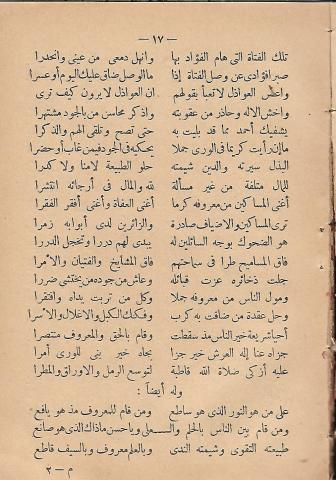 — ١٧ —
تلك الفتاة التي هام الفؤاد بها وانهل دمعي من عيني وانحدرا
صبرا فؤادي عن وصل الفتاة إذا ما الوصل ضاق عليك اليوم أو عسرا
واعص العواذل لا تعبأ بقولهم ان العواذل لا يرون كيف ترى
واخش الاله وحاذر من عقوبته واذكر محاسن من بالجود مشتهرا
يشفيك أحمد مما قد بليت به حتى تصح وتلقى الهم والذكرا
ما إن رأيت كريما في الورى جملا يحكيه في الجود فيمن غاب أو حضرا
البذل سيرته والدين شيمته حلو الطبيعة لامنا ولا كدرا
للمال متلفة من غير مسألة لله والمال في أرجائه انتشرا
أغنى المساكين من معروفه كرما أغنى العفاة وأغنى أفقر الفقرا
ترى المساكين والاضياف صادرة والزائرين لدى أبوابه زمرا
هو الضحوك بوجه السائلين له يبدى لهم دررا وتخجل الدررا
فاق المساميح طرا في سياحتهم فاق المشايخ والفتيان والأمرا
جلت ذخائره عزت قبائله وعاش من جوده من يختشى ضررا
ومول الناس من معروفه جملا وكل من تربت يداه وافتقرا
وحل عقدة من ضاقت به كرب وفكك الكبل والاغلال والأسرا
أحيا شريعة خير الناس مذ سقطت وقام بالحق والمعروف منتصرا
جزاه عنا إله العرش خير جزا بجاه خير بنى للورى أمرا
عليه أزكى صلاة الله قاطبة توسع الرمل والاوراق والمطرا
وله أيضا :
على من هو النور الذى هو ساطع ومن قام للمعروف مذ هو يافع
ومن قام بين الناس بالحلم والــعلى وياحسن ماذاك الذى هو صانع
طبيعته التقوى وشيمته الندى وبالعلم معروف وبالسيف قاطع
م — ٢